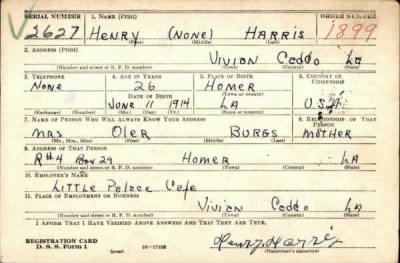 SERIAL NUMBER 1. NAME (Print) ORDER NUMBER
2627 HENRY (NONE) HARRIS 1899
(First) (Middle) (Last)
2. ADDRESS (Print)
Vivian Caddo LA
(Number and street or R. F. D. number) (Town) (County) (State)
3. TELEPHONE 4. AGE IN YEARS 5. PLACE OF BIRTH 6. COUNTRY OF CITIZENSHIP
None 26 HOMER
DATE OF BIRTH (Town or county)
JUNE 11 1914 LA U.S.A
(Exchange) (Number) (Mo.) (Day) (Yr.) (State or country)
7. NAME OF PERSON WHO WILL ALWAYS KNOW YOUR ADDRESS 8. RELATIONSHIP OF THAT PERSON
MRS OLER BURGS MOTHER
(Mr., Mrs., Miss) (First) (Middle) (Last)
9. ADDRESS OF THAT PERSON
R#4 Box 29 HOMER LA
(Number and street or R. F. D. number) (Town) (County) (State)
10. EMPLOYER'S NAME
Little Palace Cafe
11. PLACE OF EMPLOYMENT OR BUSINESS
Vivian Caddo LA
(Number and street or R. F. D. number) (Town) (County) (State)
I AFFIRM THAT I HAVE VERIFIED ABOVE ANSWERS AND THAT THEY ARE TRUE.
REGISTRATION CARD
D. S. S. Form 1 (over) 16-17105 Henry Harris
(Registrant's signature)